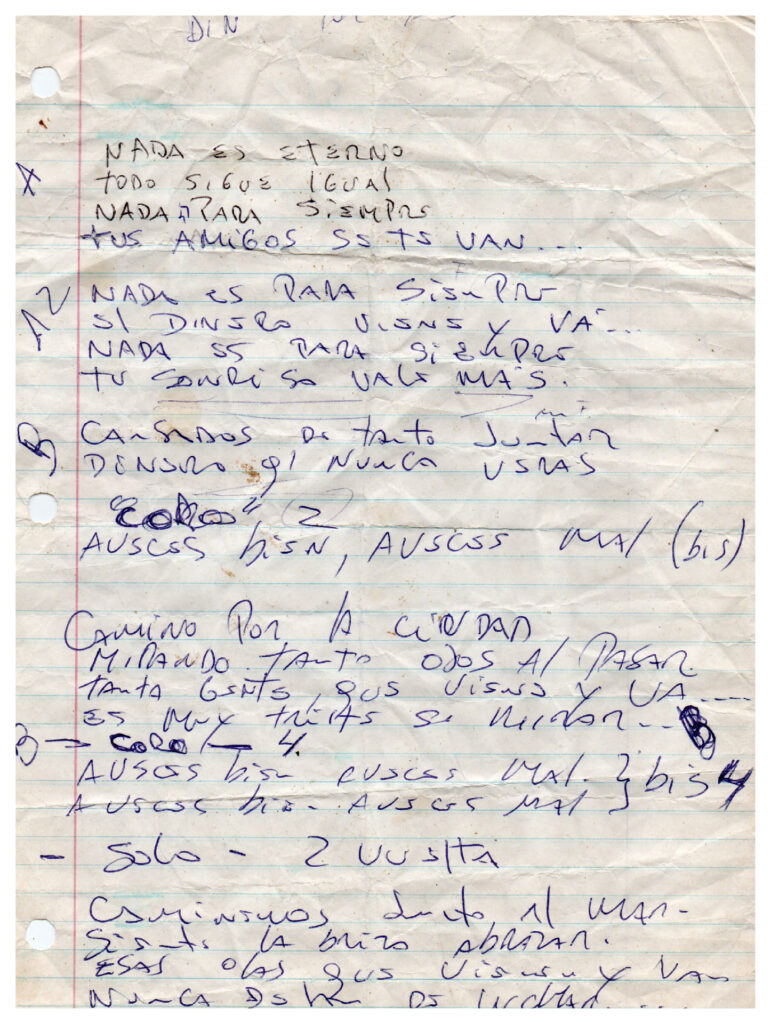 DIN
A
NADA ES ETERNO
TODO SIGUE IGUAL
NADA PARA SIEMPRE
TUS AMIGOS SE TE VAN...
A2
NADA ES PARA SIEMPRE
El DINERO VIENE Y VA...
NADA ES PARA SIEMPRE
TU SONRISA VALE MÁS.
B
CANSADOS DE TANTO JUNTAR
DINERO q' NUNCA VERAS
"CORO" 2
AVECES biEN, AVECES MAl (bis)
CAMINO POR lA CIUDAD
MIRANDO TANTO OJOS Al PASAR.
TANTA GENTE, QUE VIENE Y VA....
ES MUY TRISTE SU MIRAR... B
B — CORO — 4.
AVECES biEN AVECES MAl. } bis 4
AVECES biEN AVECES MAl
- SOLO - 2 VUElTA
CAMINEMOS JUNTO Al MAR.
SIENTE lA BRIZA ABRAZAR.
ESAS OlAS QUE VIENEN Y VAN
NUNCA DEJAN DE LUCHAR....